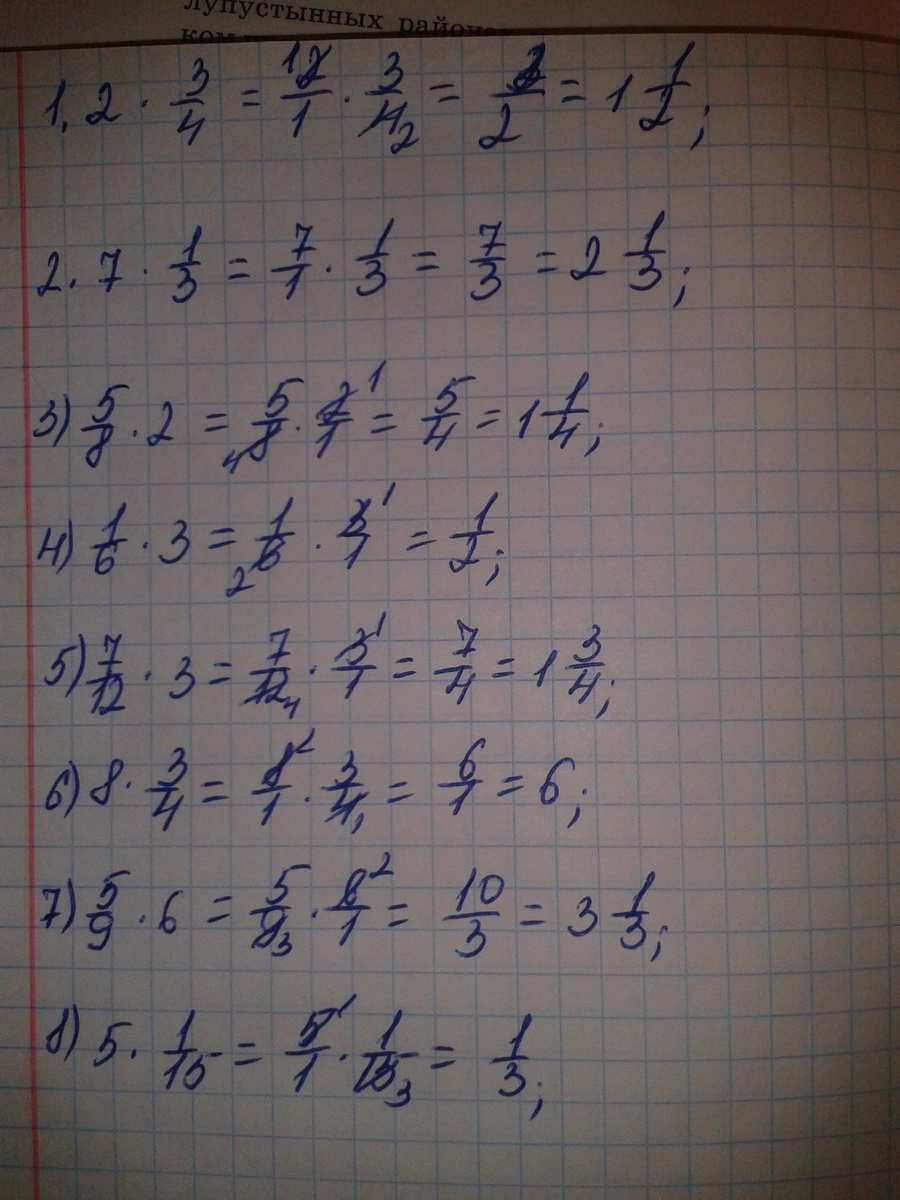 лупустынных район
1. 2 · 3/4 = 2/1 · 3/4 = 3/2 = 1 1/2;
2. 7 · 1/3 = 7/1 · 1/3 = 7/3 = 2 1/3;
3) 5/8 · 2 = 5/8 · 2/1 = 5/4 = 1 1/4;
4) 1/6 · 3 = 1/6 · 3/1 = 1/2;
5) 7/12 · 3 = 7/12 · 3/1 = 7/4 = 1 3/4;
6) 8 · 3/4 = 8/1 · 3/4 = 6/1 = 6;
7) 5/9 · 6 = 5/9 · 6/1 = 10/3 = 3 1/3;
8) 5 · 1/15 = 5/1 · 1/15 = 1/3;